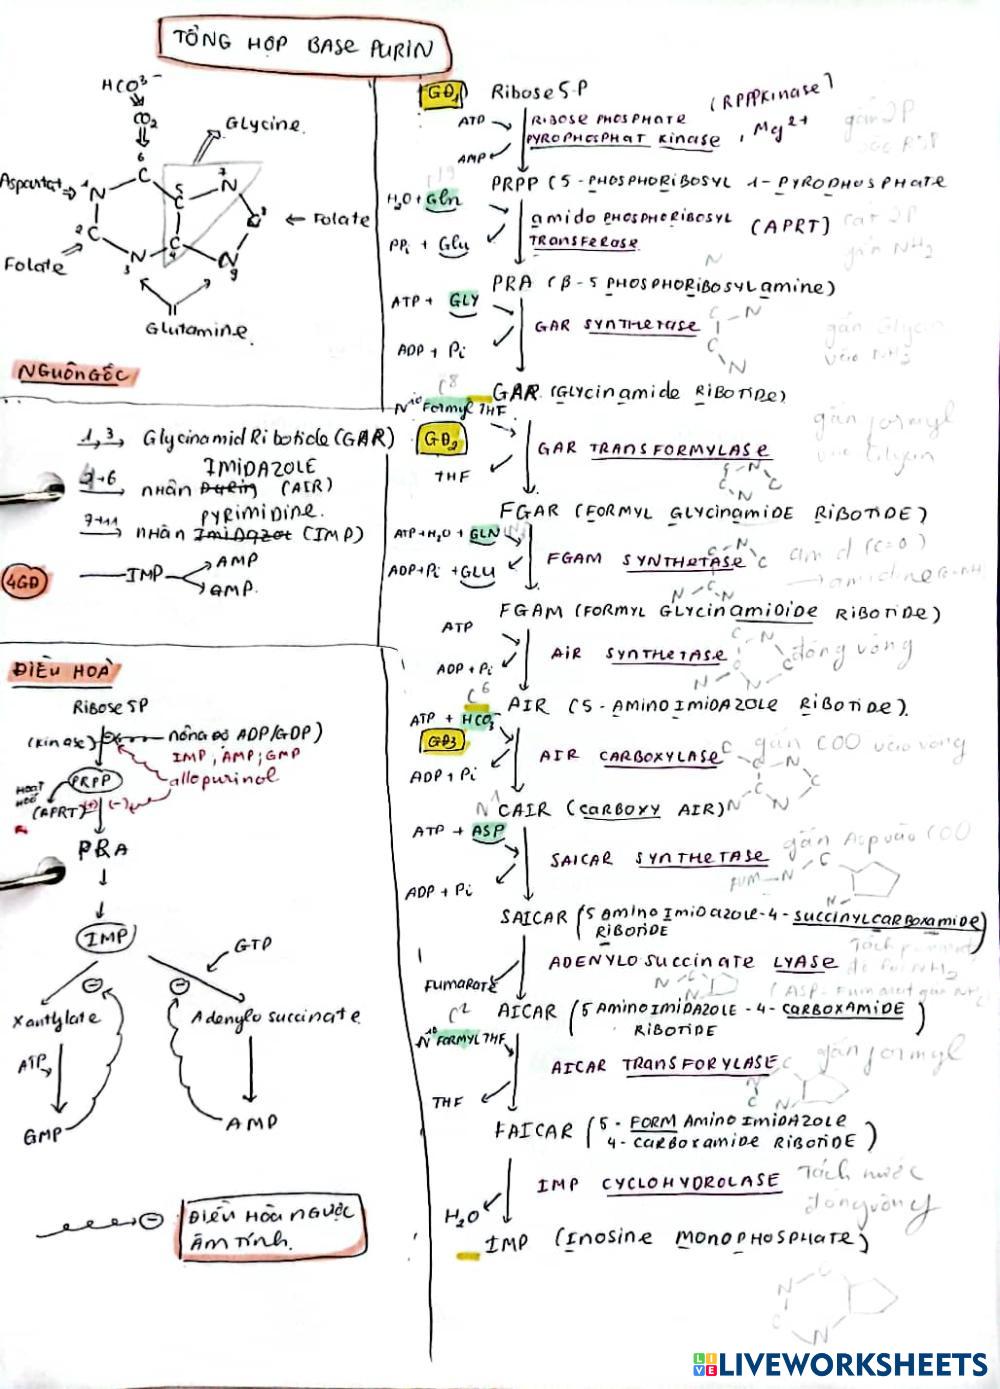 TỔNG HỢP BASE PURIN
HCO3-
CO2
Glycine
Aspartat
N
C
C
N
C
N
C
N
1
2
3
4
5
6
7
9
Folate
Folate
Glutamine
NGUỒN GỐC
1,3 Glycinamid Ribotide (GAR)
IMIDAZOLE
→6 NHÂN (AIR)
PYRIMIDINE
7→11 NHÂN IMIDAZOL (IMP)
4GĐ
IMP
AMP
GMP
ĐIỀU HOÀ
Ribose 5P
(Kinase) nồng độ ADP/GDP)
IMP; AMP; GMP
allopurinol
PRPP
HOẠT HOÁ
(APRT) (+) (-)
PRA
IMP
GTP
Xanthylate
Adenylo succinate
ATP
GMP
AMP
ĐIỀU HÒA NGƯỢC
ÂM TÍNH
GĐ1 Ribose 5-P
ATP
AMP
RIBOSE PHOSPHATE (RPPPKinase)
PYROPHOSPHAT Kinase, Mg2+
gắn 2P
vào R5P
PRPP (5-PHOSPHORIBOSYL 1-PYROPHOSPHATE
H2O + Gln
PPi + Glu
amido PHOSPHORIBOSYL (APRT)
TRANSFERASE
cắt 2P
gắn NH2
N
PRA (β-5 PHOSPHORIBOSYLamine)
ATP + GLY
ADP + Pi
GAR SYNTHETASE
C - N
C
N
gắn Glycin
vào NH3
C8
GAR (GLYcinamide RIBOTIDE)
N10 Formyl THF
GĐ2
THF
GAR TRANSFORMYLASE
gắn formyl
vào Glycin
FGAR (FORMYL GLYCINamIDE RIBOTIDE)
ATP+H2O + GLN
ADP+Pi + GLU
FGAM SYNTHETASE
amid (C=O)
→ amidine
FGAM (FORMYL GLYCINamIDIDE RIBOTIDE)
ATP
ADP + Pi
AIR SYNTHETASE
đóng vòng
C6
AIR (5-AMINO IMIDAZOLE RIBOTIDE)
ATP + HCO3-
GĐ3
ADP + Pi
AIR CARBOXYLASE
gắn COO vào vòng
N1
CAIR (CARBOXY AIR)
ATP + ASP
ADP + Pi
SAICAR SYNTHETASE
gắn Asp vào COO
FUM - N
SAICAR (5 AMINO IMIDAZOLE-4-SUCCINYLCARBOXAMIDE)
RIBOTIDE
ADENYLO succinate LYASE
FUMARATE
C2
AICAR (5 AMINO IMIDAZOLE-4-CARBOXAMIDE)
RIBOTIDE
N10 FORMYL THF
THF
AICAR TRANSFORYLASE
gắn formyl
FAICAR (5-FORM AMINO IMIDAZOLE
4-CARBOXAMIDE RIBOTIDE)
H2O
IMP CYCLOHYDROLASE
Tách nước
đóng vòng
IMP (Inosine MONOPHOSPHATE)
LIVEWORKSHEETS